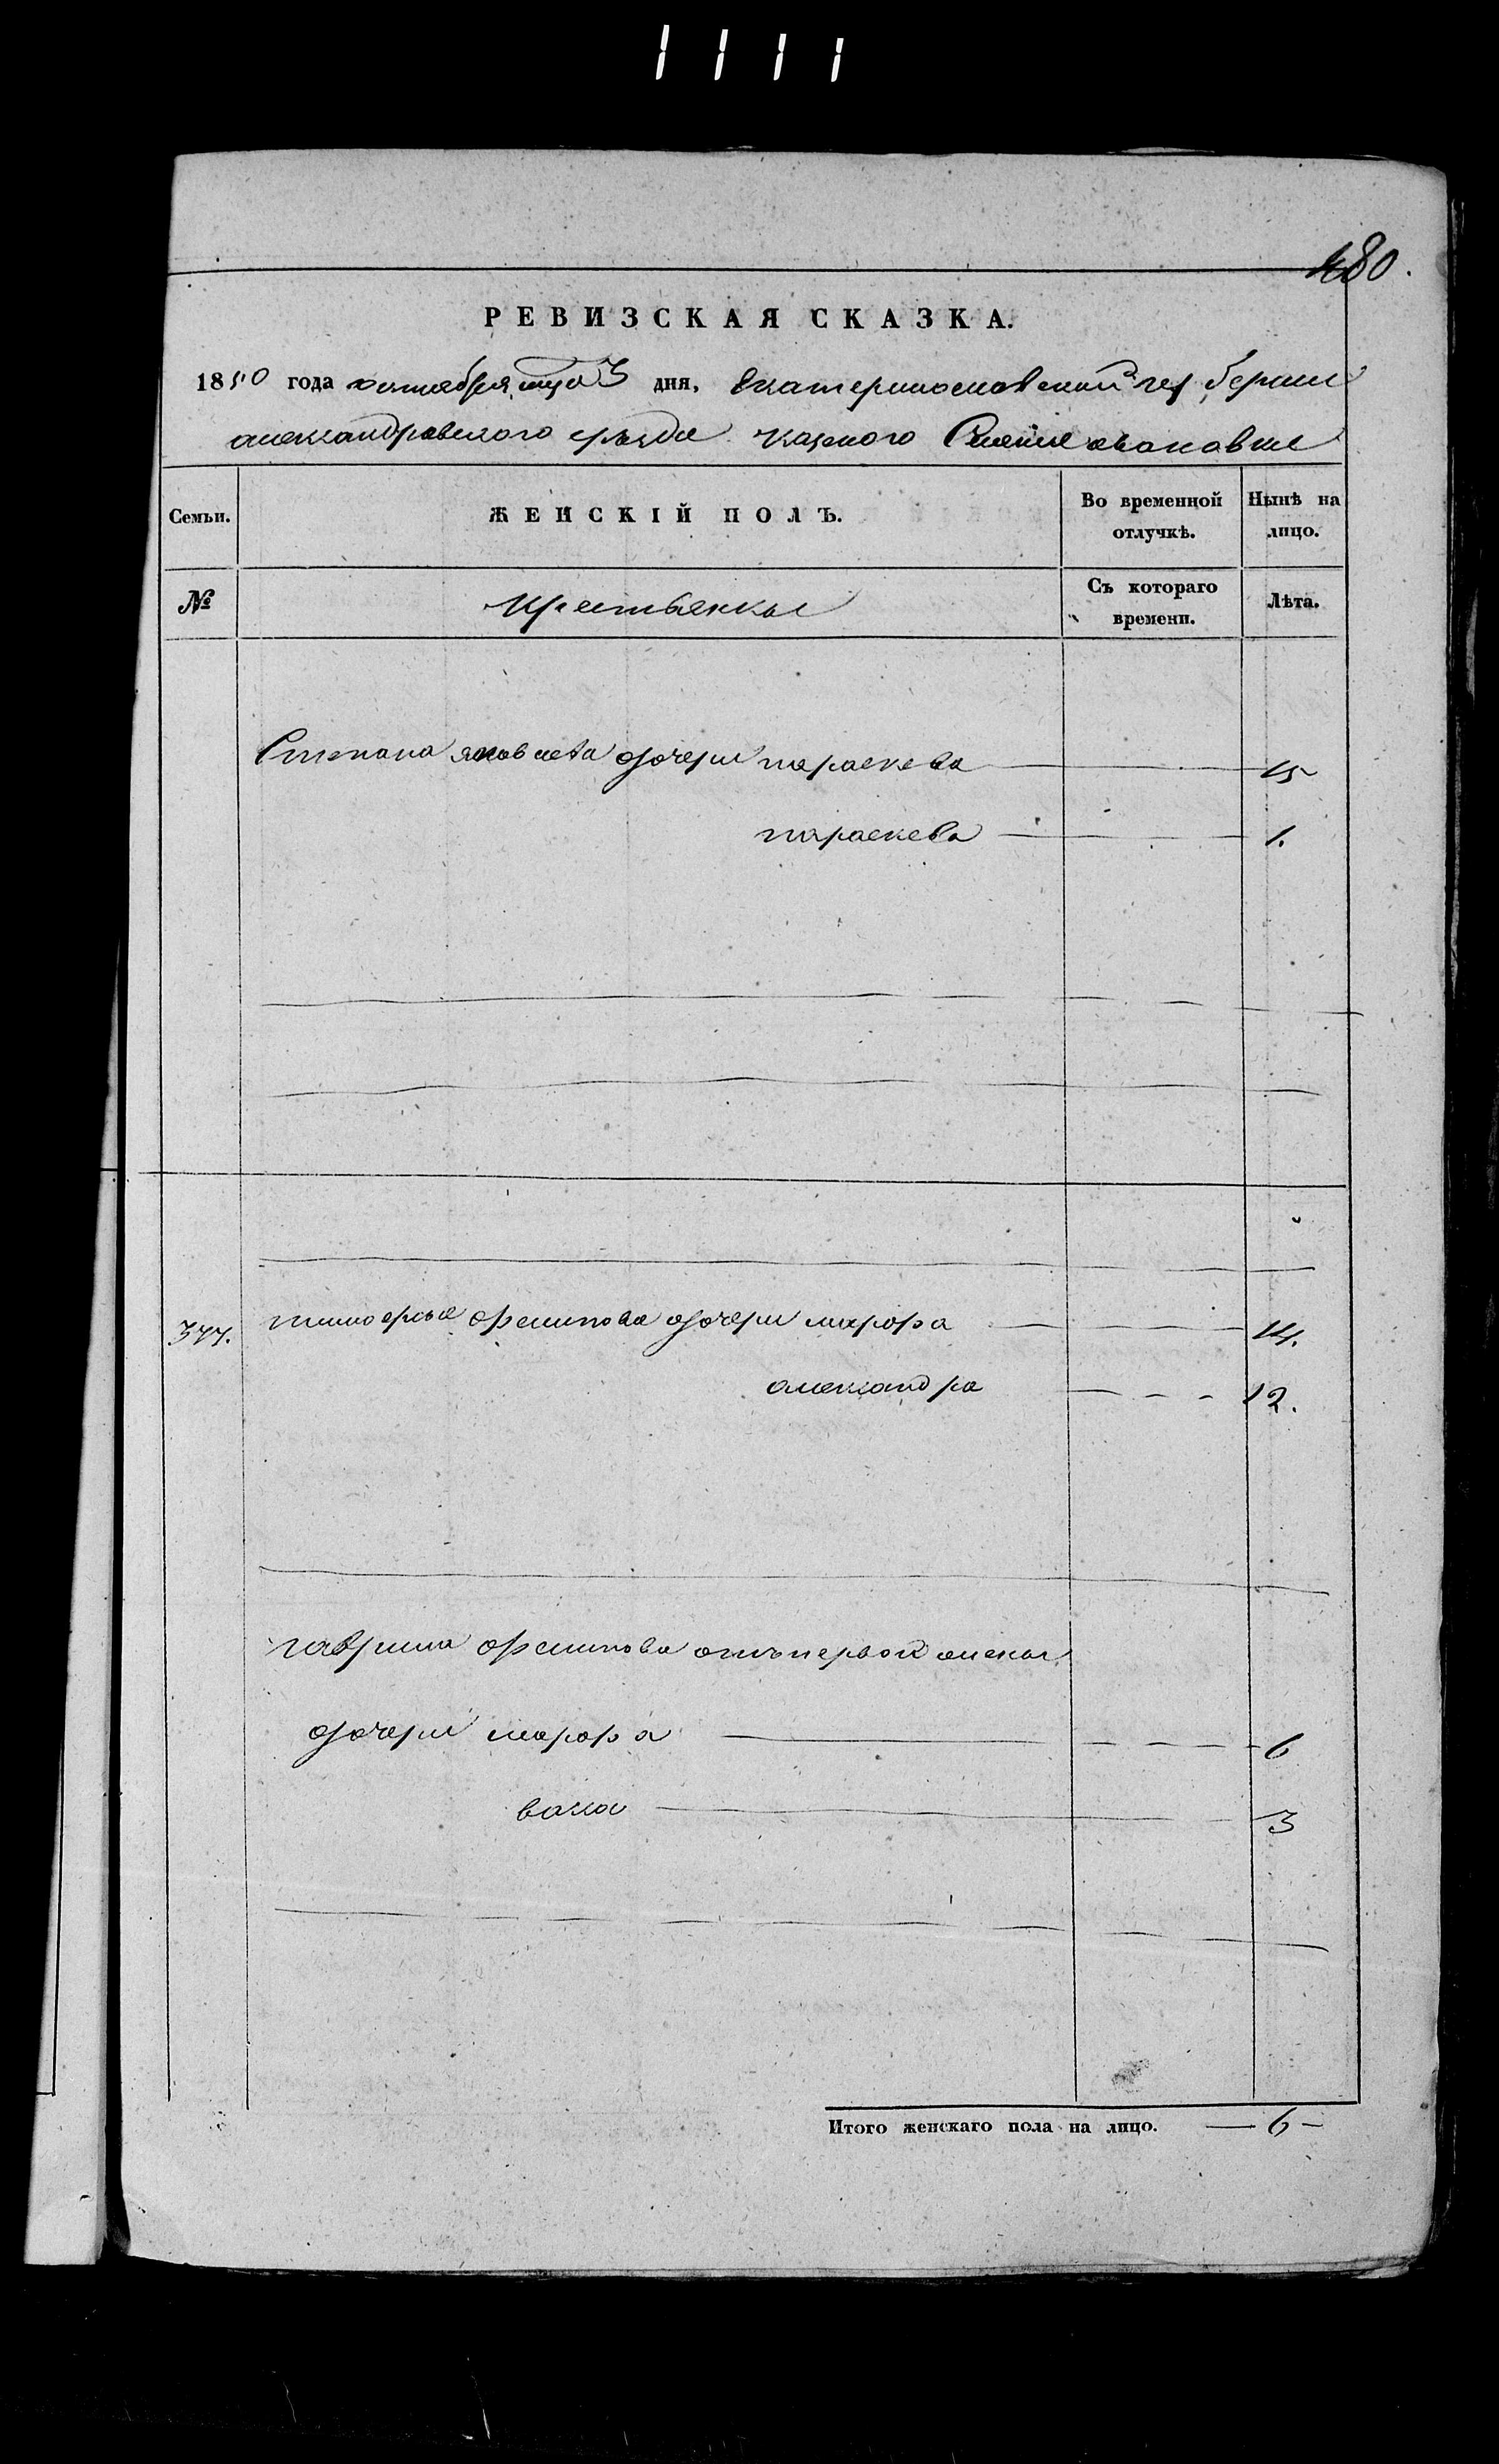 1111
480.
РЕВИЗСКАЯ СКАЗКА.
1850 года октября мца 3 дня, Екатеринославской губернии
александровского уезда казеного Селения
Семьи. ЖЕНСКІЙ ПОЛЪ. Во временной отлучкѣ. Нынѣ на лицо.
№ крестьянки Съ котораго времени. Лѣта.
Степана яковлева дочери параскева 15
параскева 1.
377. тимофея филипова дочери марфа 14.
александра 12.
гаврила филипова отъ первой жены
дочери марфа 6
васса 3
Итого женскаго пола на лицо. — 6 —